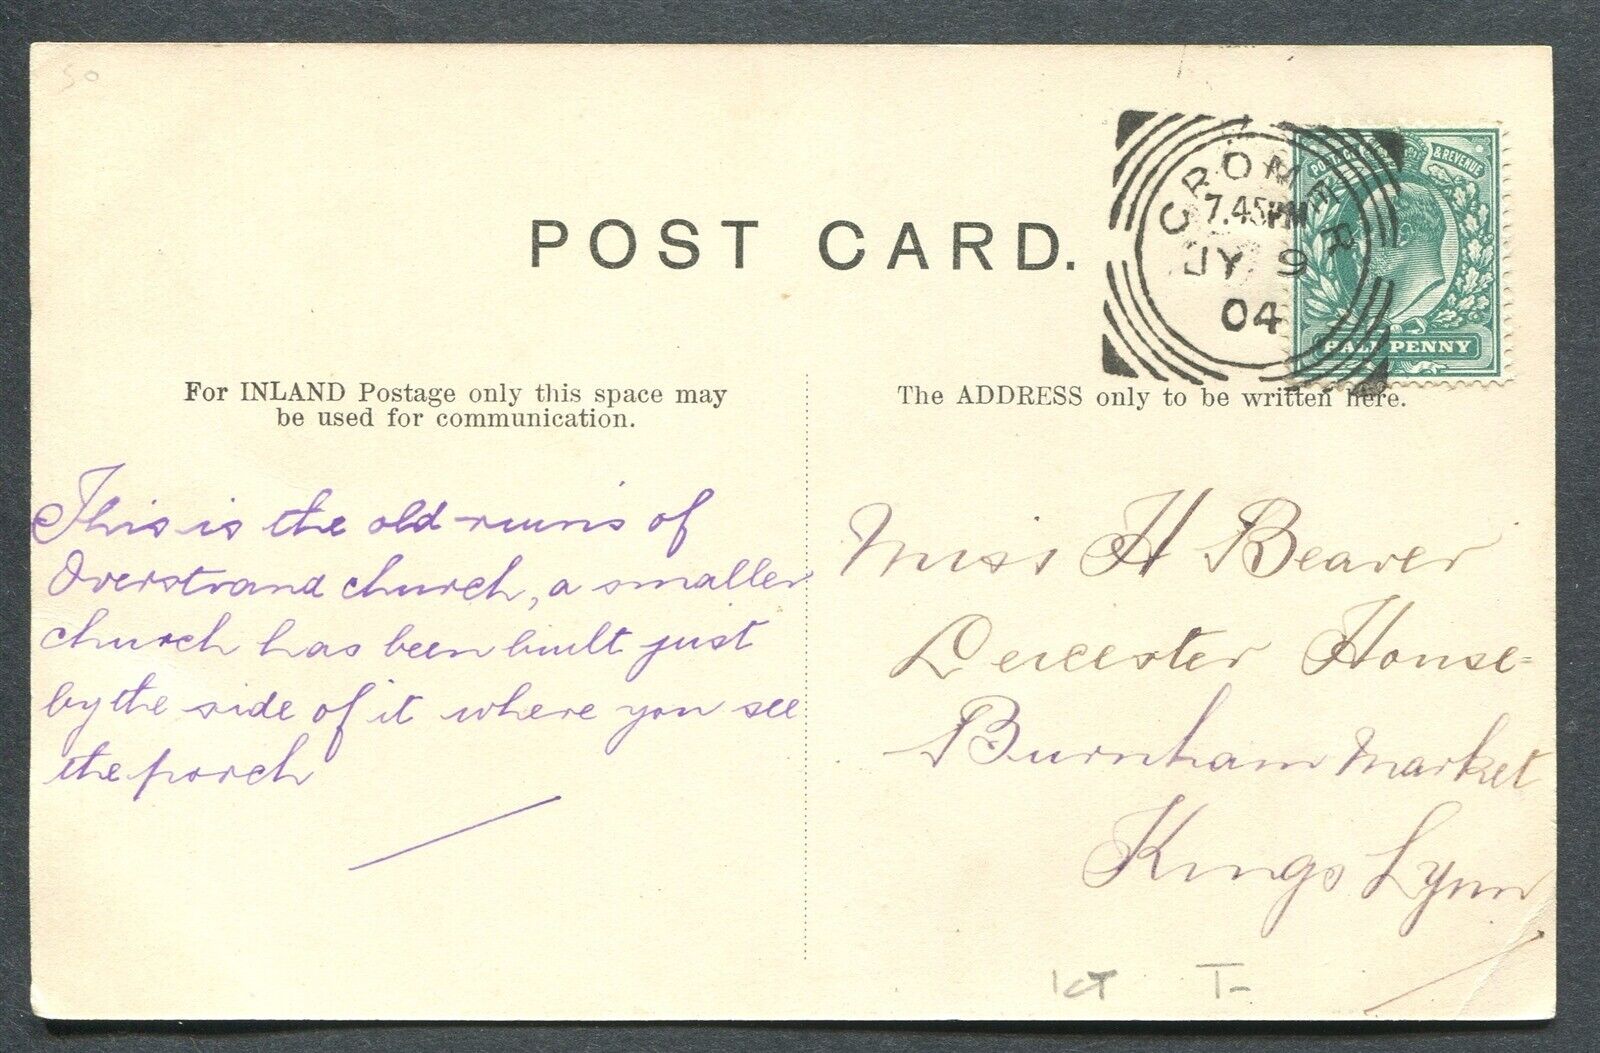 50
POST CARD.
CROMER
7.45PM
JY 9
04
& REVENUE
HALFPENNY
For INLAND Postage only this space may
be used for communication.
The ADDRESS only to be written here.
This is the old ruins of
Overstrand church, a smaller
church has been built just
by the side of it where you see
the porch
Miss H Beaver
Leicester House
Burnham Market
Kings Lynn
T-